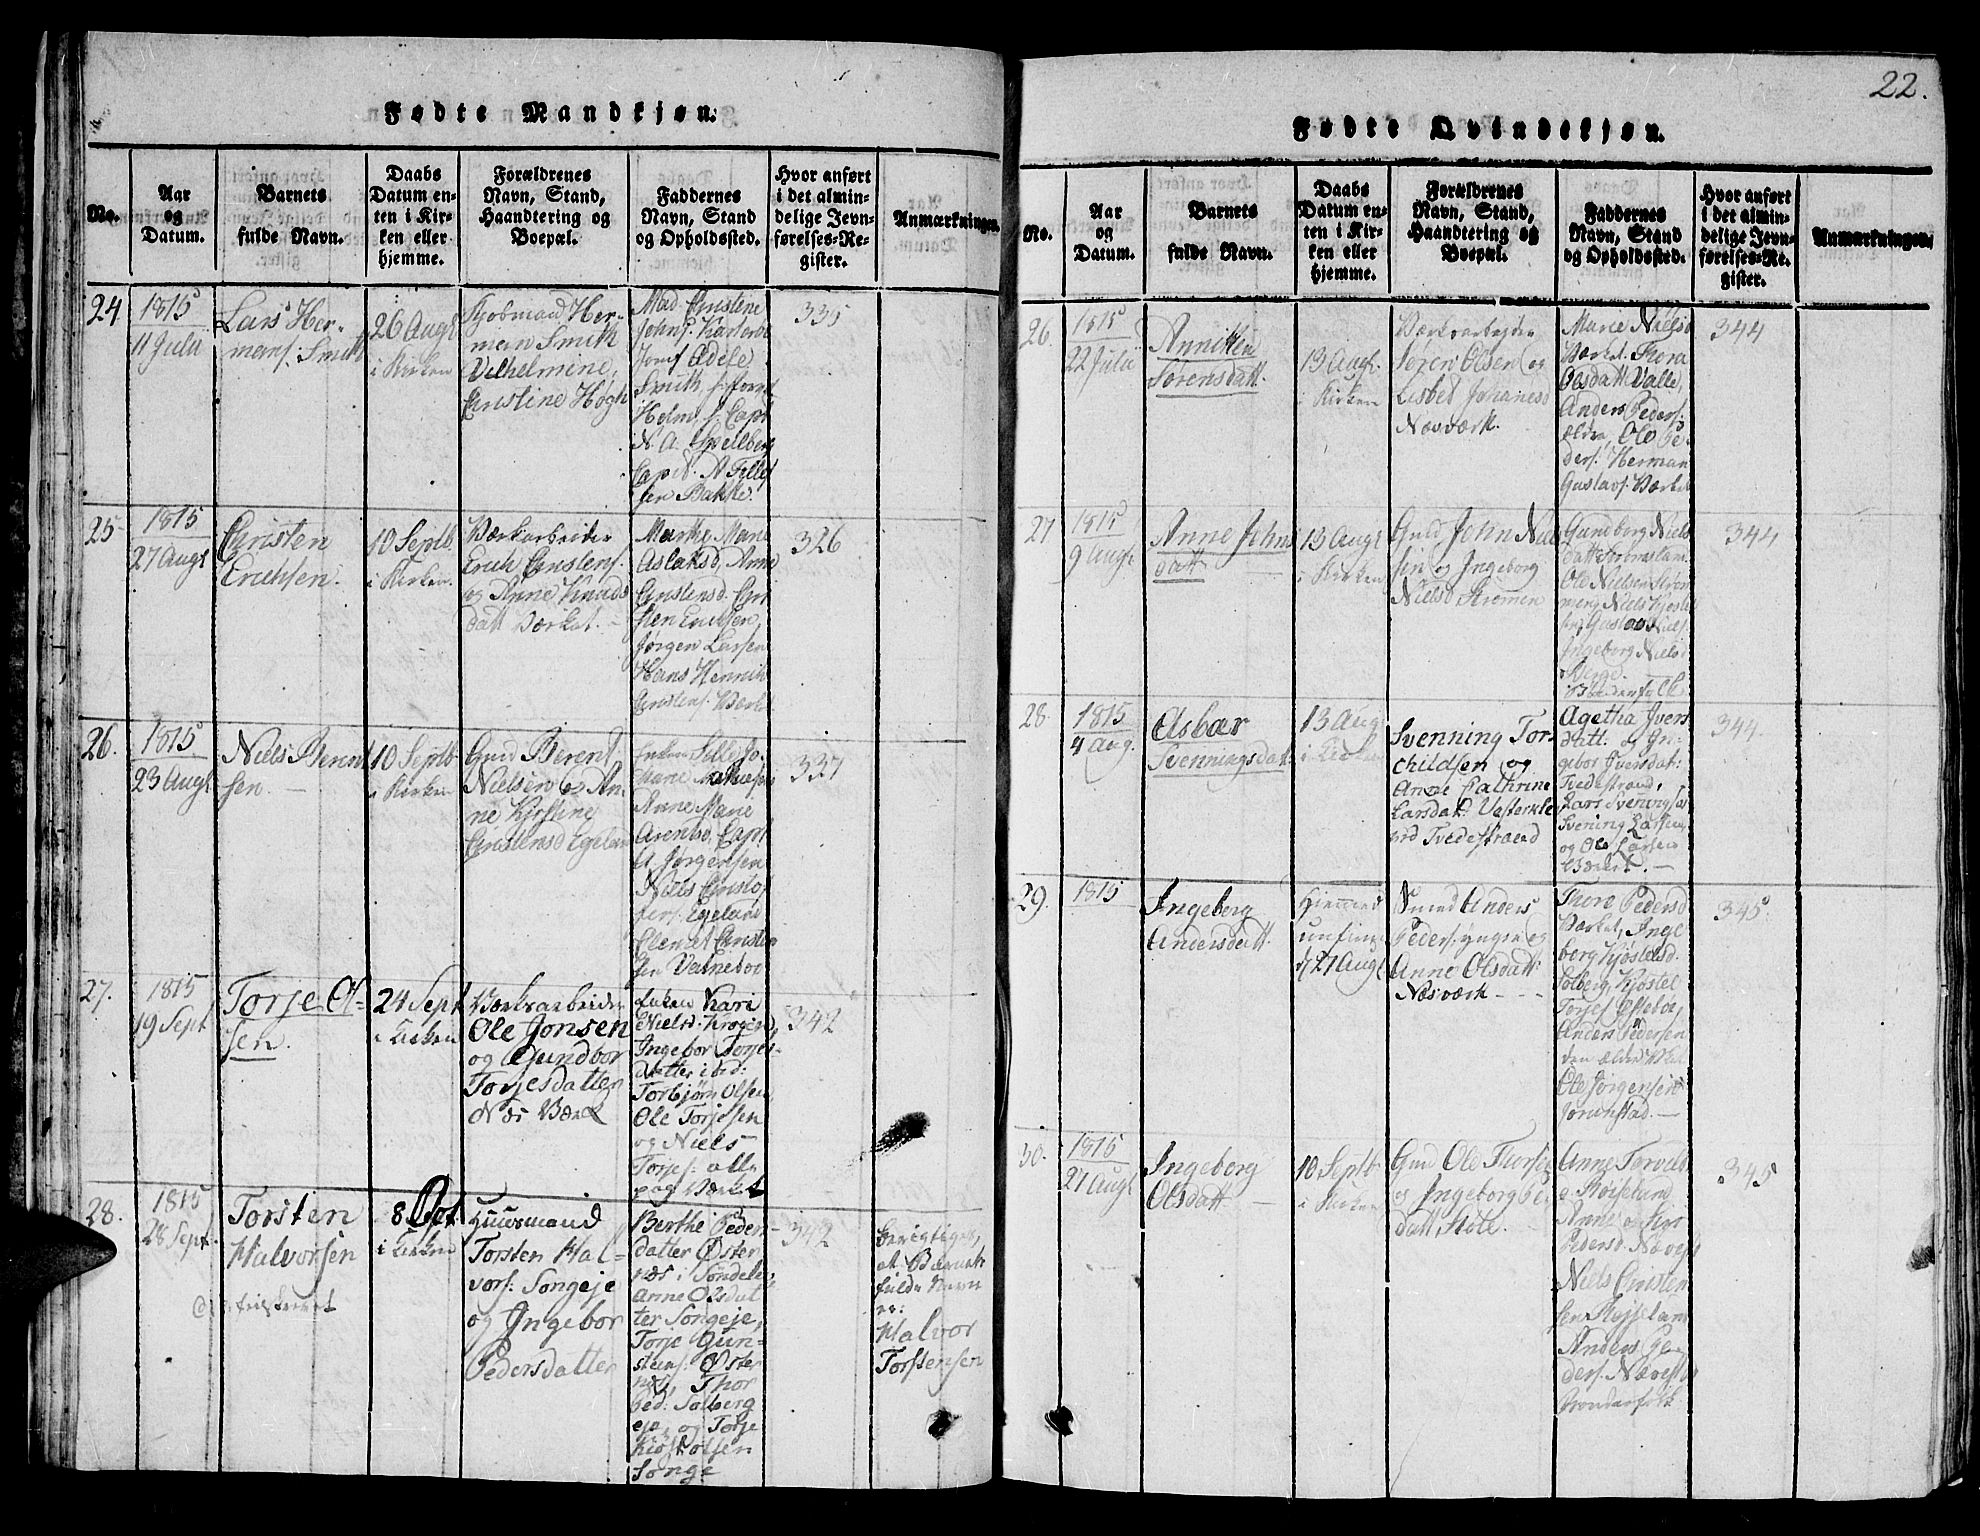 22.
Fødte Mandkjøn.
No.
Aar
og
Datum.
Barnets
fulde Navn.
Daabs
Datum en-
ten i Kir-
ken eller
hjemme.
Forældrenes
Navn, Stand,
Haandtering og
Boepæl.
Faddernes
Navn, Stand
og Opholdssted.
Hvor anført
i det almin-
delige Jevn-
førelses-Re-
gister.
Anmærkninger.
24
1815
11 Julii
Lars Her-
mans. Smith
26 Augt
i Kirken
Kjøbmand Her-
man Smith
Vilhelmine,
Christine Høgh
Mad. Christine
Adele
Smith
Holm
N. A.
Capit. A
sen Bakke.
335
25
1815
27 Augt
Christen
Erichsen.
10 Septb
i Kirken
Værksarbeider
Erich Christens.
og Anne Knuds
datt Værket.
Marthe Marie
Aslaksd, Anne
Christensd. Chri
sten Erichsen,
Jørgen Larsen
Hans Henrich
Christens. Værket
326
26.
1815
23 Augt
Niels Berent
sen.
10 Septb
i Kirken
Gmd Berent
Nielsen og An-
ne Kjerstine
Christensd Egeland
Anne Marie
Arentsd, Capt
A. Jørgensen
Niels Christof
fers. Egeland
Clemet Christen
sen Valneboe
337
27.
1815
19 Sept
Torje Ol-
sen.
24 Sept
i Kirken
Værksarbeider
Ole Jonsen
og Gundbor
Torjesdatter
Nes Værk
Enken Kari
Nielsd. Krogen,
Ingebor Torjes-
datter ibid:
Torbjørn Olsen,
Ole Torjesen
og Niels
Torjes. alle
paa Værket
342
28.
1815
28 Sept.
Torsten
Halvorsen
8 Oct.
i Kirken
Huusmand
Torsten Hal-
vors: Songeje
og Ingebor
Pedersdatter
Berthe Peders
datter Øster
næs i Søndele,
Anne Olsdat
ter Songeje,
Torje Gun-
steens. Øster
næs, Thor
Ped: Solberg
eje, og Torje
Kiøstolsen
Songe
342
berigtiget,
at Barnets
fulde Navn
er:
Halvor
Torstensen
Fødte Qvindekjøn.
No.
Aar
og
Datum.
Barnets
fulde Navn.
Daabs
Datum en-
ten i Kir-
ken eller
hjemme.
Forældrenes
Navn, Stand,
Haandtering og
Boepæl.
Faddernes
Navn, Stand
og Opholdssted.
Hvor anført
i det almin-
delige Jevn-
førelses-Re-
gister.
Anmærkninger.
26.
1815
22 Julii
Annitten
Sørensdatt.
13 Augt.
i Kirken
Værksarbejder
Søren Olsen og
Lisbet Johanesd
Næsværk.
Marie Nielsd
Værket. Thora
Olsdatt Valle,
Anders Peders.
ældre, Ole Pe
ders. Herman
Gustavs. Værket
344
27
1815
9 Augt
Anne Johns
datt
13 Augt
i Kirken
Gmd John Niel
sen og Ingeborg
Nielsd Strømen
Gunborg Niels
datt
Ole Nielsen Strøm
men, Niels Kjøstel
sen, Gustav Niels.
Ingeborg Nielsd
Berge.
Bøndenfolk
344
28
1815
4 Aug.
Asbær
Svenningsdatt:
13 Aug
i Kirken
Svenning Tors
childsen og
Anne Cathrine
Larsdat: Vesterkle
ved Tvedestrand
Agetha Ivers
datt. og In-
gebor Iversdat:
Tvedestrand,
Lars Svenningsen
Svening Larsen
og Ole Larsen
Værket.
344.
29.
1815
Ingeborg
Andersdatt.
Hiemmed
d 27 Augt
Smed Anders
Peders. yngre og
Anne Olsdatt:
Næsværk
Thore Pedersd
Værket, Inge
borg Kjøstelsd.
Solberg, Kjøstel
Torjes. Østeboe,
Anders Pedersen
den ældre Værket
Ole Jørgensen
345
30.
1815
27 Augt
Ingeborg
Olsdatt
10 Septb
i Kirken
Gmd Ole Thorsen
og Ingeborg Pe
datt Støle
Anne Torvels
d. Røiseland
Pedersd. Næves
Niels Christen
sen
Anders Pe-
ders. Næves
Bønderfolk
345